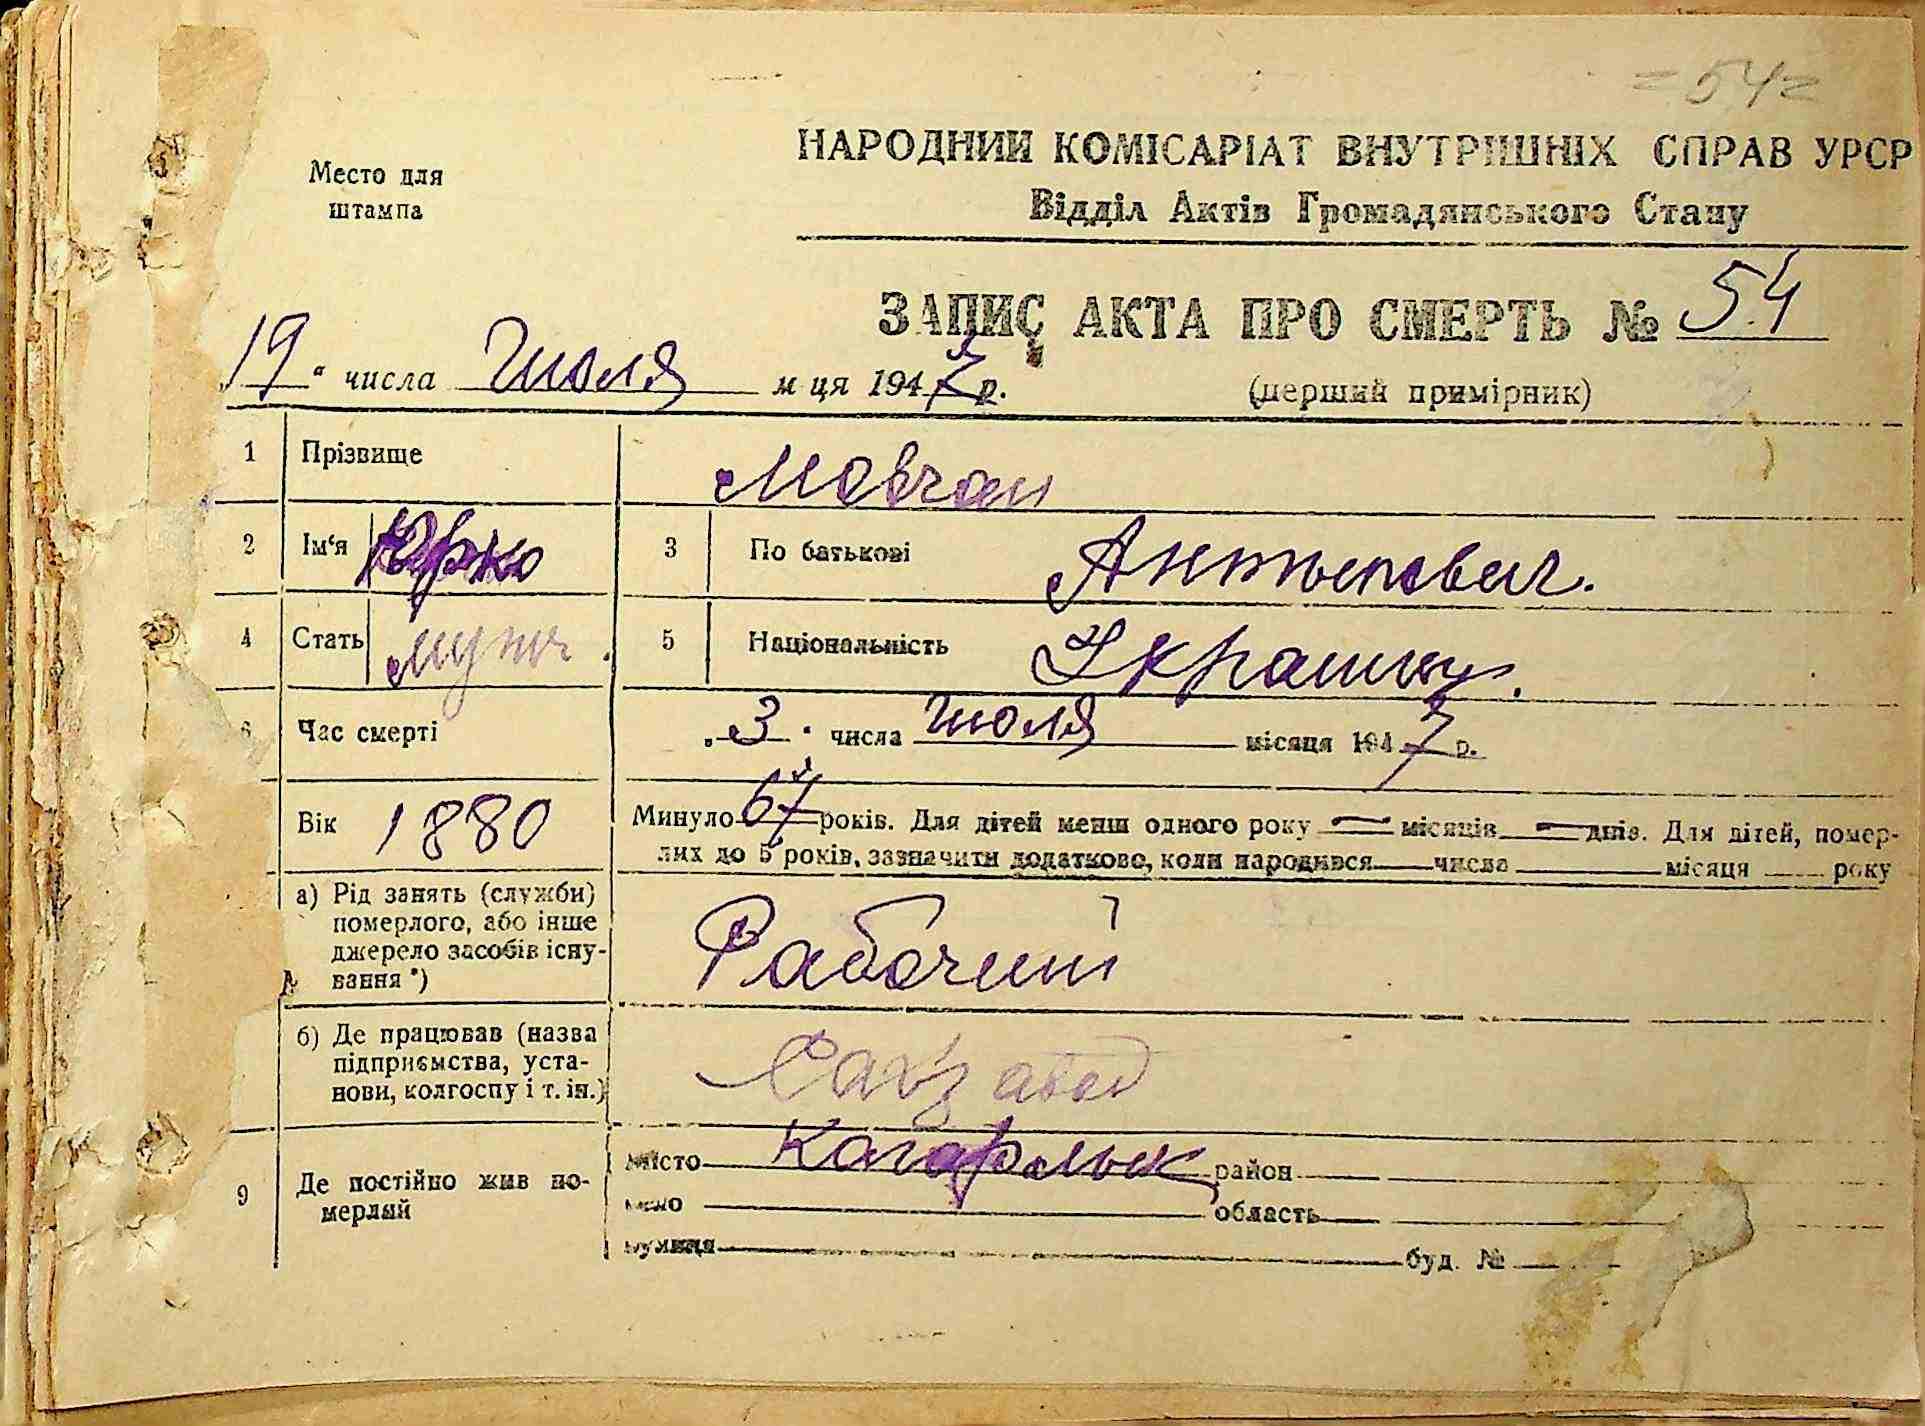 =54=
Место для
штампа
НАРОДНИЙ КОМІСАРІАТ ВНУТРІШНІХ СПРАВ УРСР
Відділ Актів Громадянського Стану
ЗАПИС АКТА ПРО СМЕРТЬ № 54
19 " числа Июля м ця 1947 р.
(перший примірник)
1 Прізвище Мовчан
2 Ім'я Юрко 3 По батькові Антипович.
4 Стать муж. 5 Національність Украинец.
6 Час смерті "3" числа июля місяця 1947 р.
Вік 1880 Минуло 67 років. Для дітей менш одного року — місяців — днів. Для дітей, помер-
лих до 5 років, зазначити додатково, коли народився числа місяця року
а) Рід занять (служби)
померлого, або інше
джерело засобів існу-
вання *)
Рабочий
б) Де працював (назва
підприємства, уста-
нови, колгоспу і т. ін.)
Сахзавод
9 Де постійно жив по-
мерлий
місто Кагарлык район
село область
вулиця буд. №